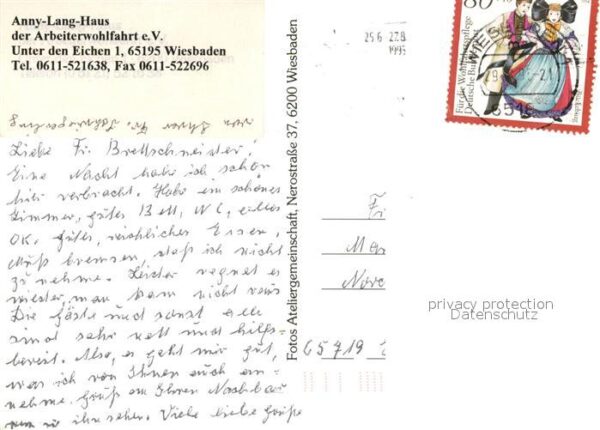 Anny-Lang-Haus
der Arbeiterwohlfahrt e.V.
Unter den Eichen 1, 65195 Wiesbaden
Tel. 0611-521638, Fax 0611-522696
von Ihrer Fr.
Liebe Fr. Brettschneider!
Eine Nacht habe ich schon
hier verbracht. Habe ein schönes
Zimmer, gutes Bett, WC, alles
OK. Gutes, reichliches Essen,
Muß bremsen, daß ich nicht
zunehme. Leider regnet es
wieder, man kann nicht raus
Die Gäste und sonst alle
sind sehr nett und hilfs-
bereit. Also, es geht mir gut,
was ich von Ihnen auch an-
nehme. Gruß an Ihren Nachbar
wenn Sie ihn sehen. Viele liebe Grüße
Fotos Ateliergemeinschaft, Nerostraße 37, 6200 Wiesbaden
25 6 27.8
1993
80
Für die Wohlfahrtspflege
Deutsche Bundes
WIESB
6519
Fr
Ma
Nove
65719
privacy protection
Datenschutz